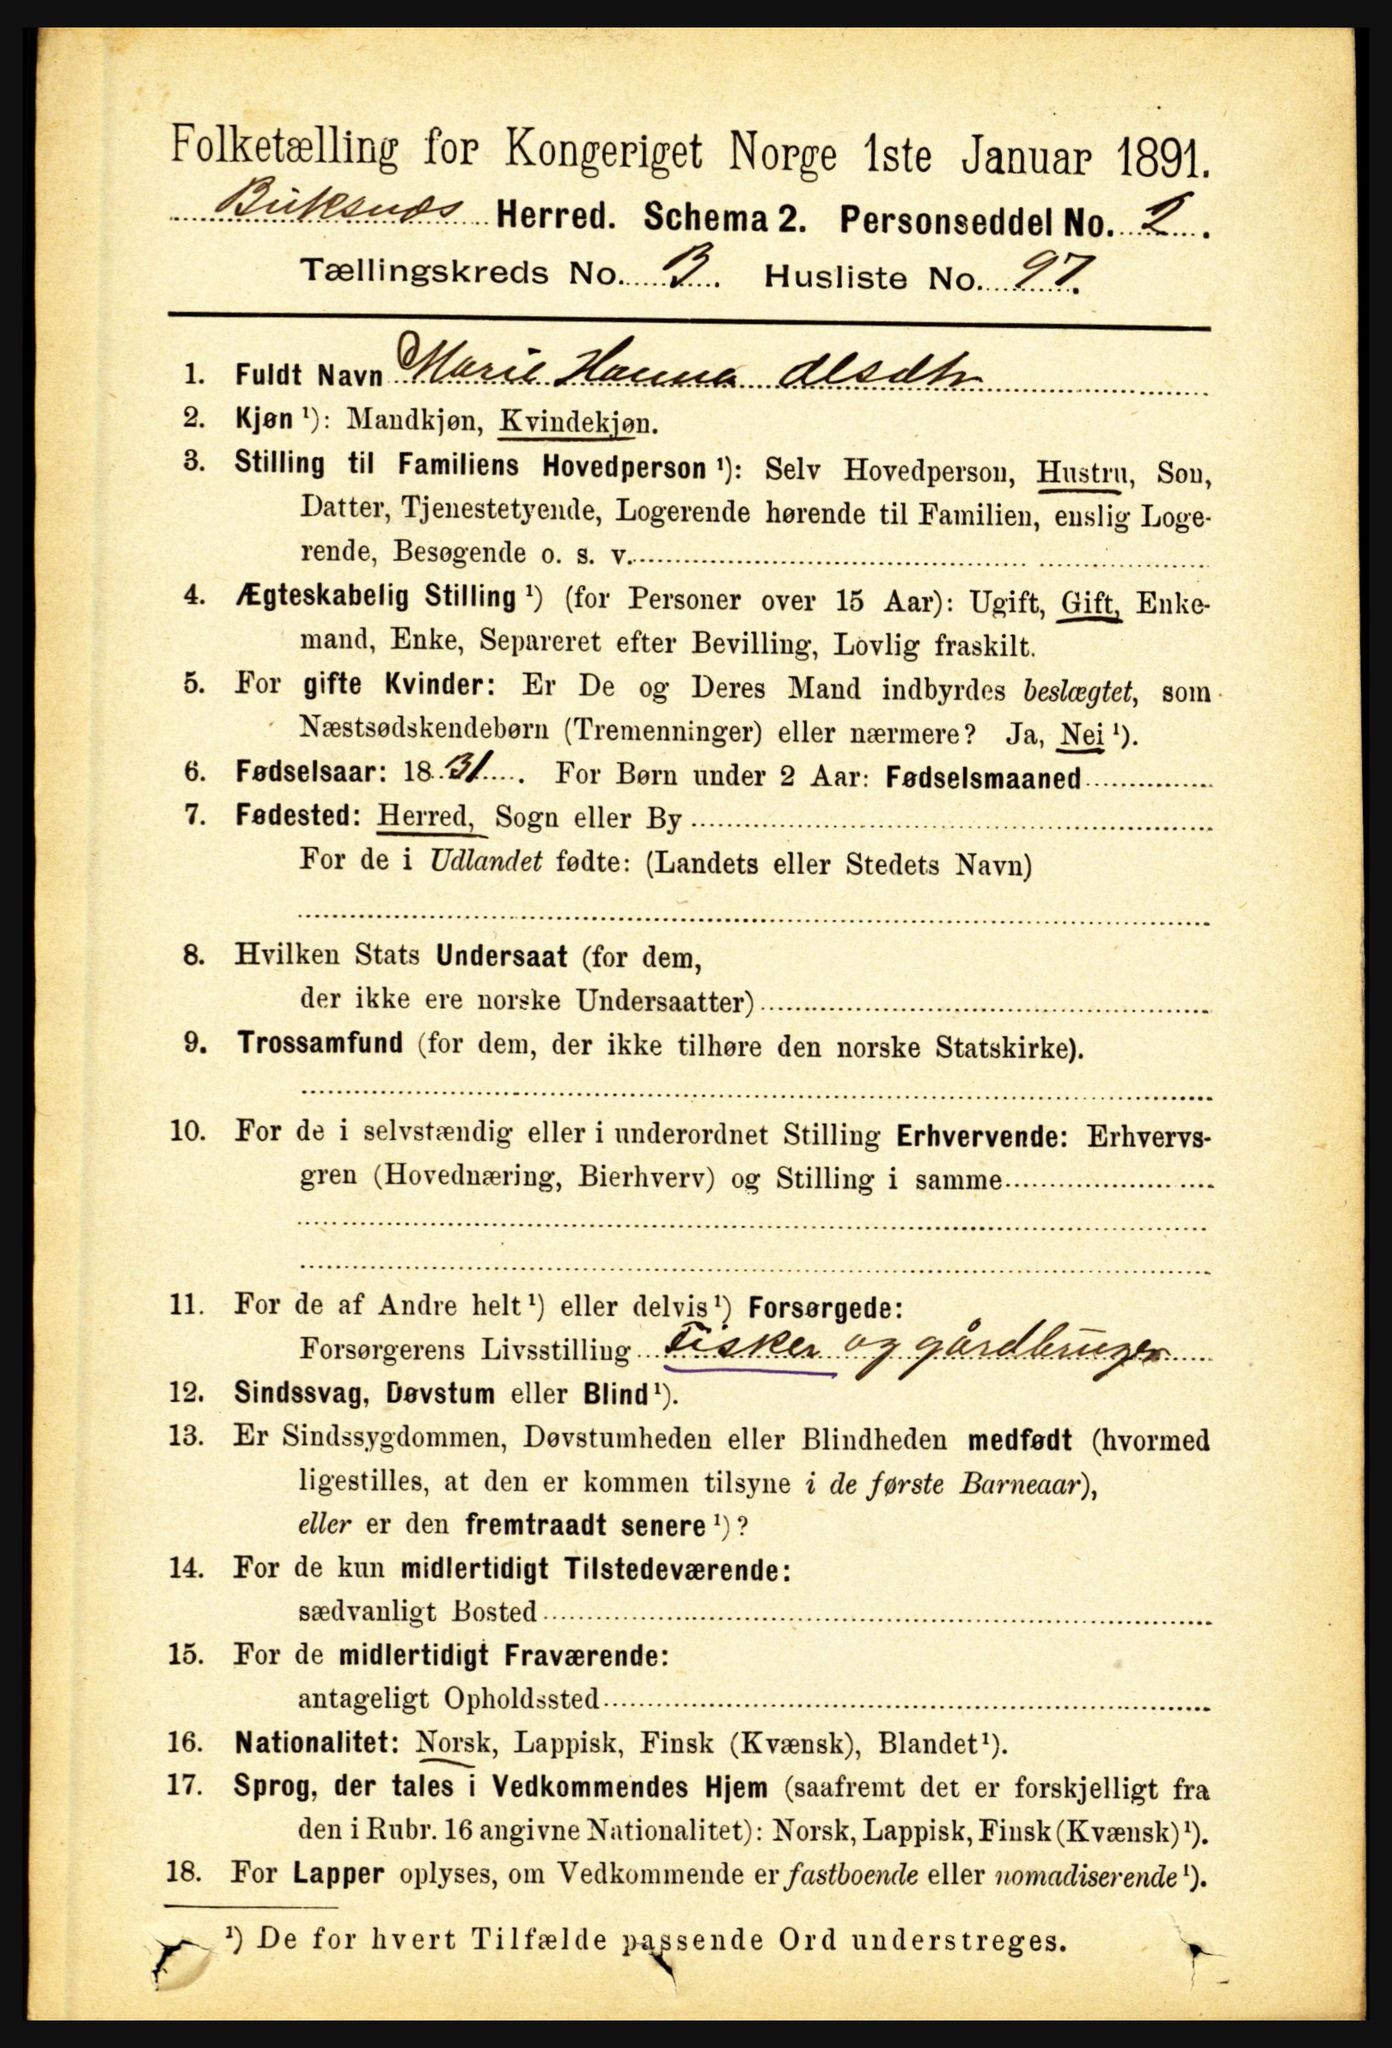 Folketælling for Kongeriget Norge 1ste Januar 1891.
Buksnæs Herred. Schema 2. Personseddel No. 2.
Tællingskreds No. 3. Husliste No. 97.
1. Fuldt Navn Marie Hanna Olsdtr
2. Kjøn ¹): Mandkjøn, Kvindekjøn.
3. Stilling til Familiens Hovedperson ¹): Selv Hovedperson, Hustru, Søn,
Datter, Tjenestetyende, Logerende hørende til Familien, enslig Loge-
rende, Besøgende o. s. v.
4. Ægteskabelig Stilling ¹) (for Personer over 15 Aar): Ugift, Gift, Enke-
mand, Enke, Separeret efter Bevilling, Lovlig fraskilt.
5. For gifte Kvinder: Er De og Deres Mand indbyrdes beslægtet, som
Næstsødskendebørn (Tremenninger) eller nærmere? Ja, Nei ¹).
6. Fødselsaar: 1831. For Børn under 2 Aar: Fødselsmaaned
7. Fødested: Herred, Sogn eller By
For de i Udlandet fødte: (Landets eller Stedets Navn)
8. Hvilken Stats Undersaat (for dem,
der ikke ere norske Undersaatter)
9. Trossamfund (for dem, der ikke tilhøre den norske Statskirke).
10. For de i selvstændig eller i underordnet Stilling Erhvervende: Erhvervs-
gren (Hovednæring, Bierhverv) og Stilling i samme
11. For de af Andre helt ¹) eller delvis ¹) Forsørgede:
Forsørgerens Livsstilling Fisker og gårdbruger
12. Sindssvag, Døvstum eller Blind ¹).
13. Er Sindssygdommen, Døvstumheden eller Blindheden medfødt (hvormed
ligestilles, at den er kommen tilsyne i de første Barneaar),
eller er den fremtraadt senere ¹)?
14. For de kun midlertidigt Tilstedeværende:
sædvanligt Bosted
15. For de midlertidigt Fraværende:
antageligt Opholdssted
16. Nationalitet: Norsk, Lappisk, Finsk (Kvænsk), Blandet ¹).
17. Sprog, der tales i Vedkommendes Hjem (saafremt det er forskjelligt fra
den i Rubr. 16 angivne Nationalitet): Norsk, Lappisk, Finsk (Kvænsk) ¹).
18. For Lapper oplyses, om Vedkommende er fastboende eller nomadiserende ¹).
¹) De for hvert Tilfælde passende Ord understreges.